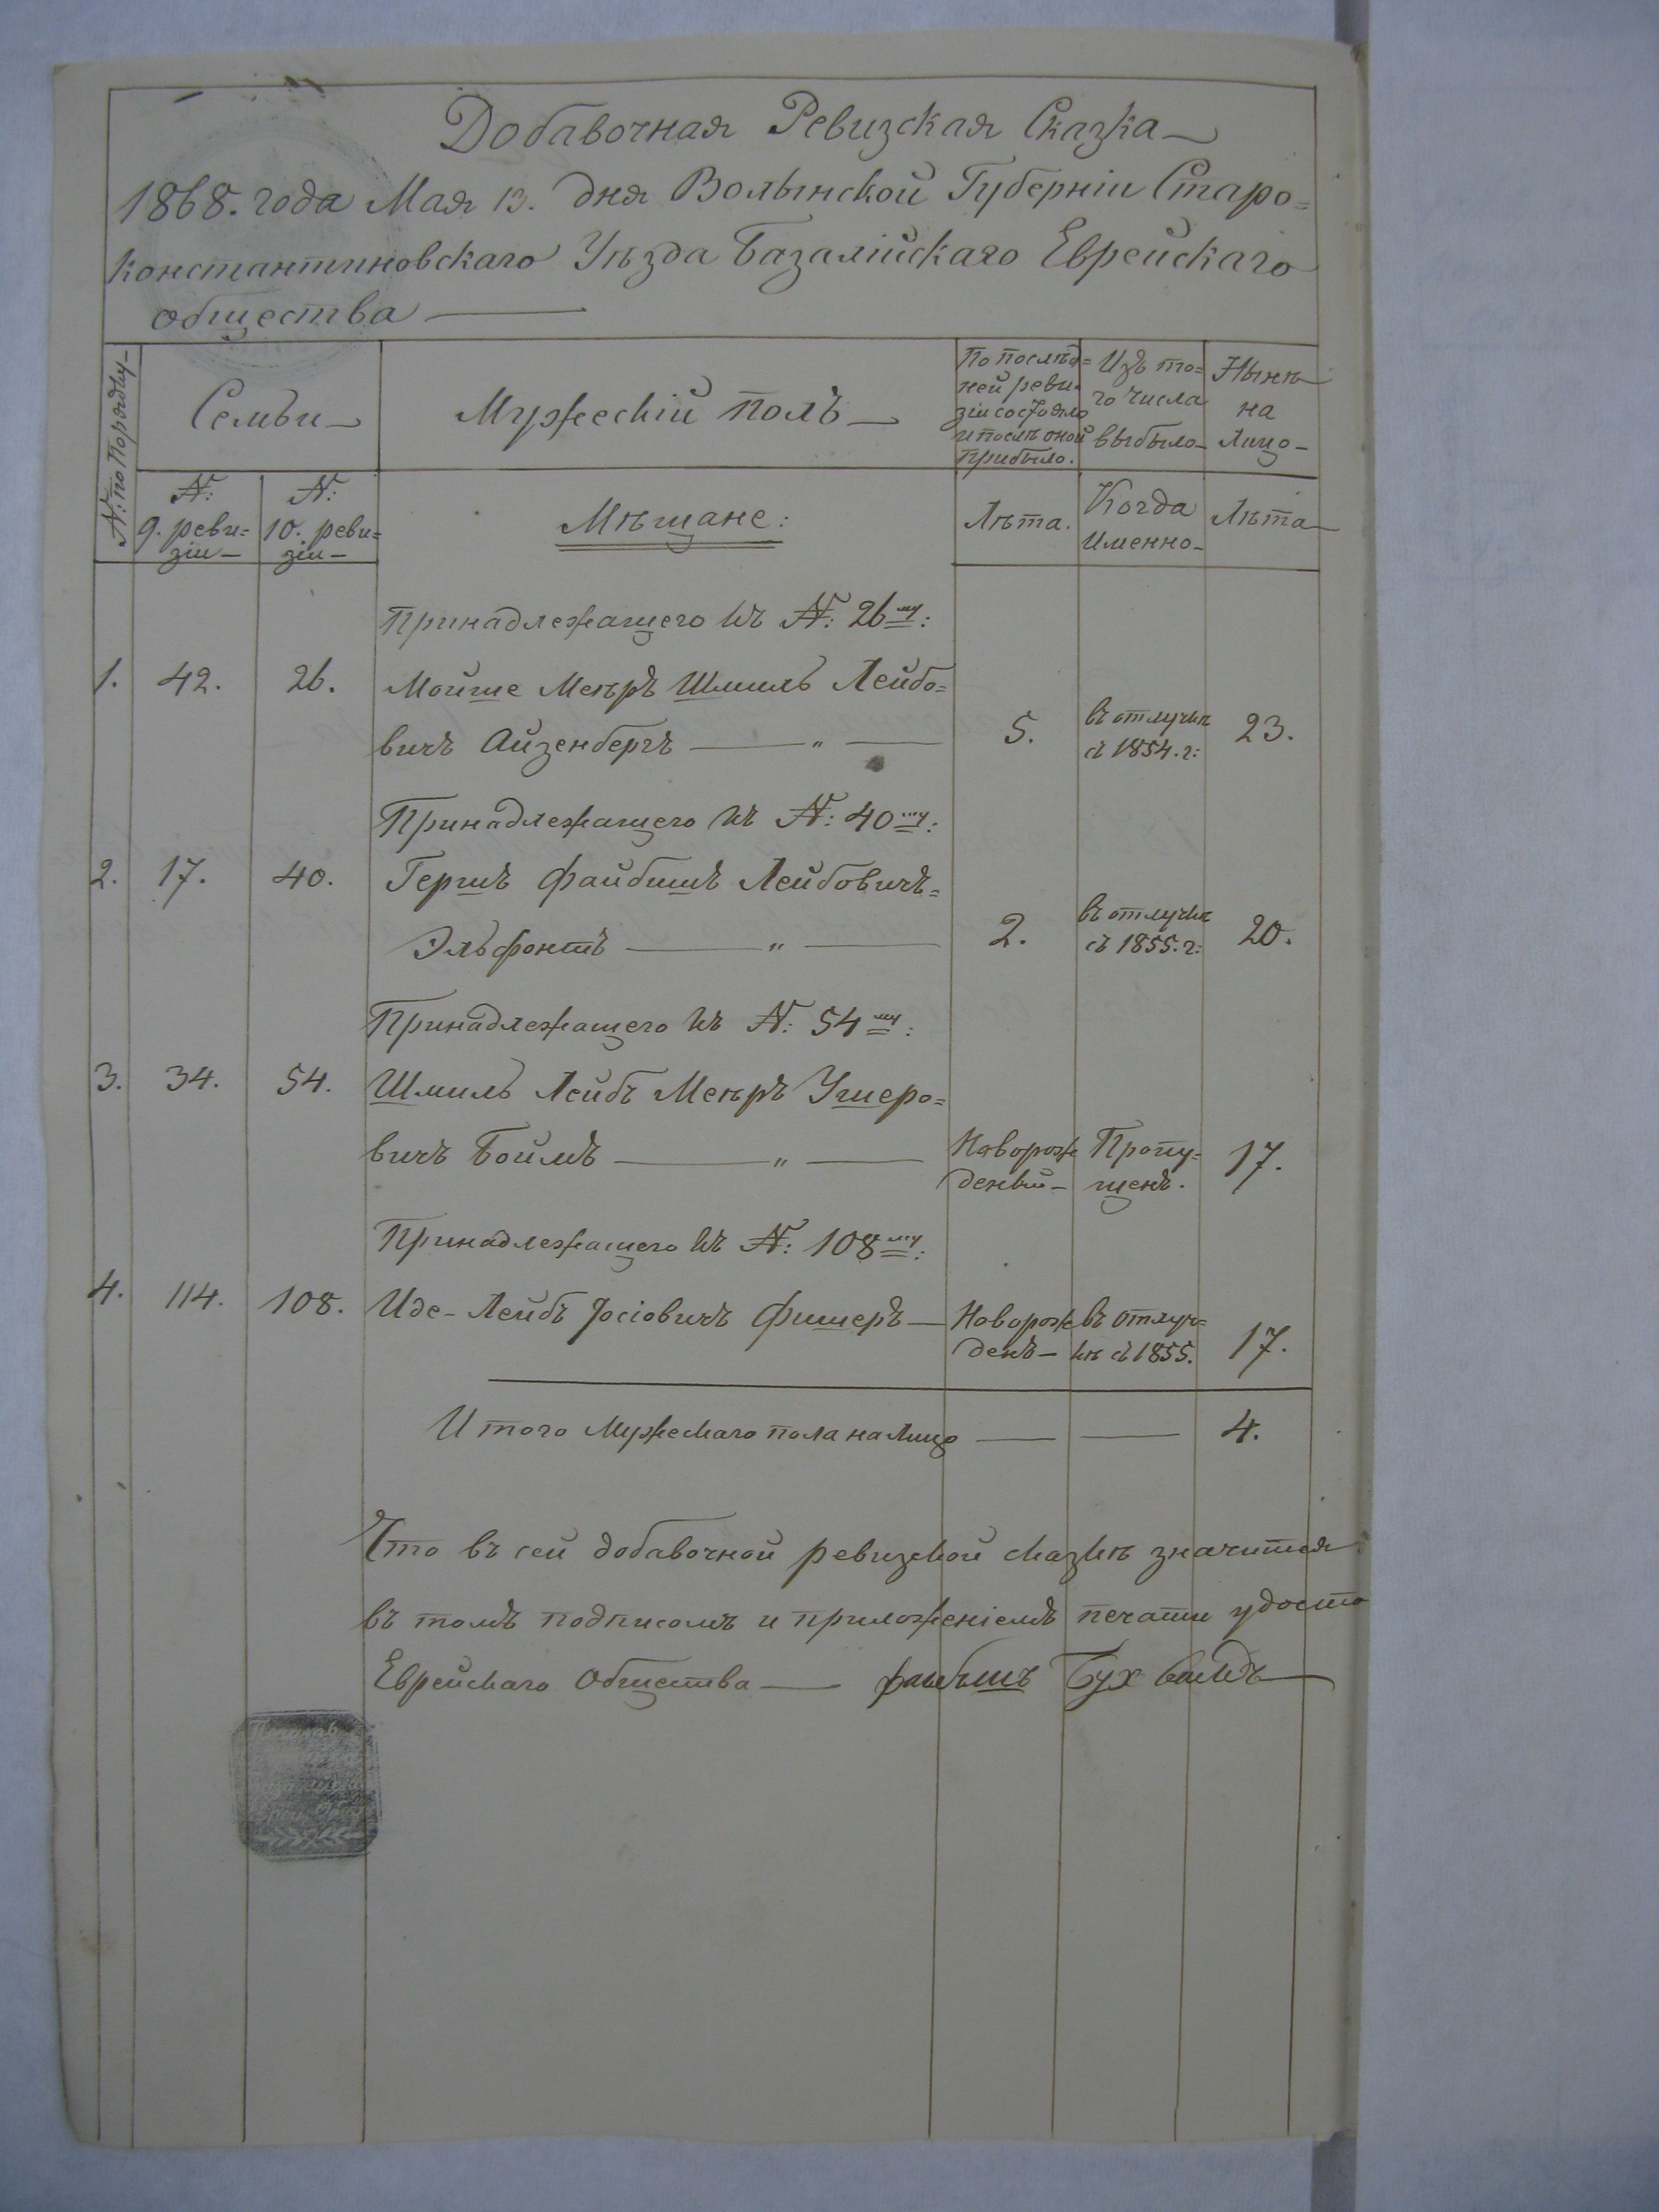 Добавочная Ревизская Сказка
1868. года Мая 13. дня Волынской Губерніи Старо=
константиновскаго Уѣзда Базалійскаго Еврейскаго
общества
№: по Порядку
Семьи
Мужескій полъ
По послѣд=
ней реви=
зіи состояло
и послѣ оной
прибыло.
Изъ то=
го числа
выбыло
Нынѣ
на
Лицо
№:
9. реви=
зіи
№:
10. реви=
зіи
Мѣщане:
Лѣта.
Когда
Именно
Лѣта
Принадлежащего къ №: 26му:
1. 42. 26. Мойше Меѣръ Шмиль Лейбо=
вичъ Айзенбергъ — „ — 5. въ отлучкѣ съ 1854. г: 23.
Принадлежащего къ №: 40му:
2. 17. 40. Гершъ Файбишъ Лейбовичъ=
Эльфонтъ — „ — 2. въ отлучкѣ съ 1855. г: 20.
Принадлежащего къ №: 54му:
3. 34. 54. Шмиль Лейбъ Меѣръ Ушеро=
вичъ Боймъ — „ — Новорожденый Пропущенъ. 17.
Принадлежащего къ №: 108му:
4. 114. 108. Иде-Лейбъ Іосіовичъ Фишеръ — Новорожденъ въ отлучкѣ съ 1855. 17.
Итого Мужескаго пола на Лицо — — 4.
Что въ сей добавочной ревизской сказкѣ значится
въ томъ подписомъ и приложеніемъ печати удосто
Еврейскаго Общества — Файбишъ Бух
Печать